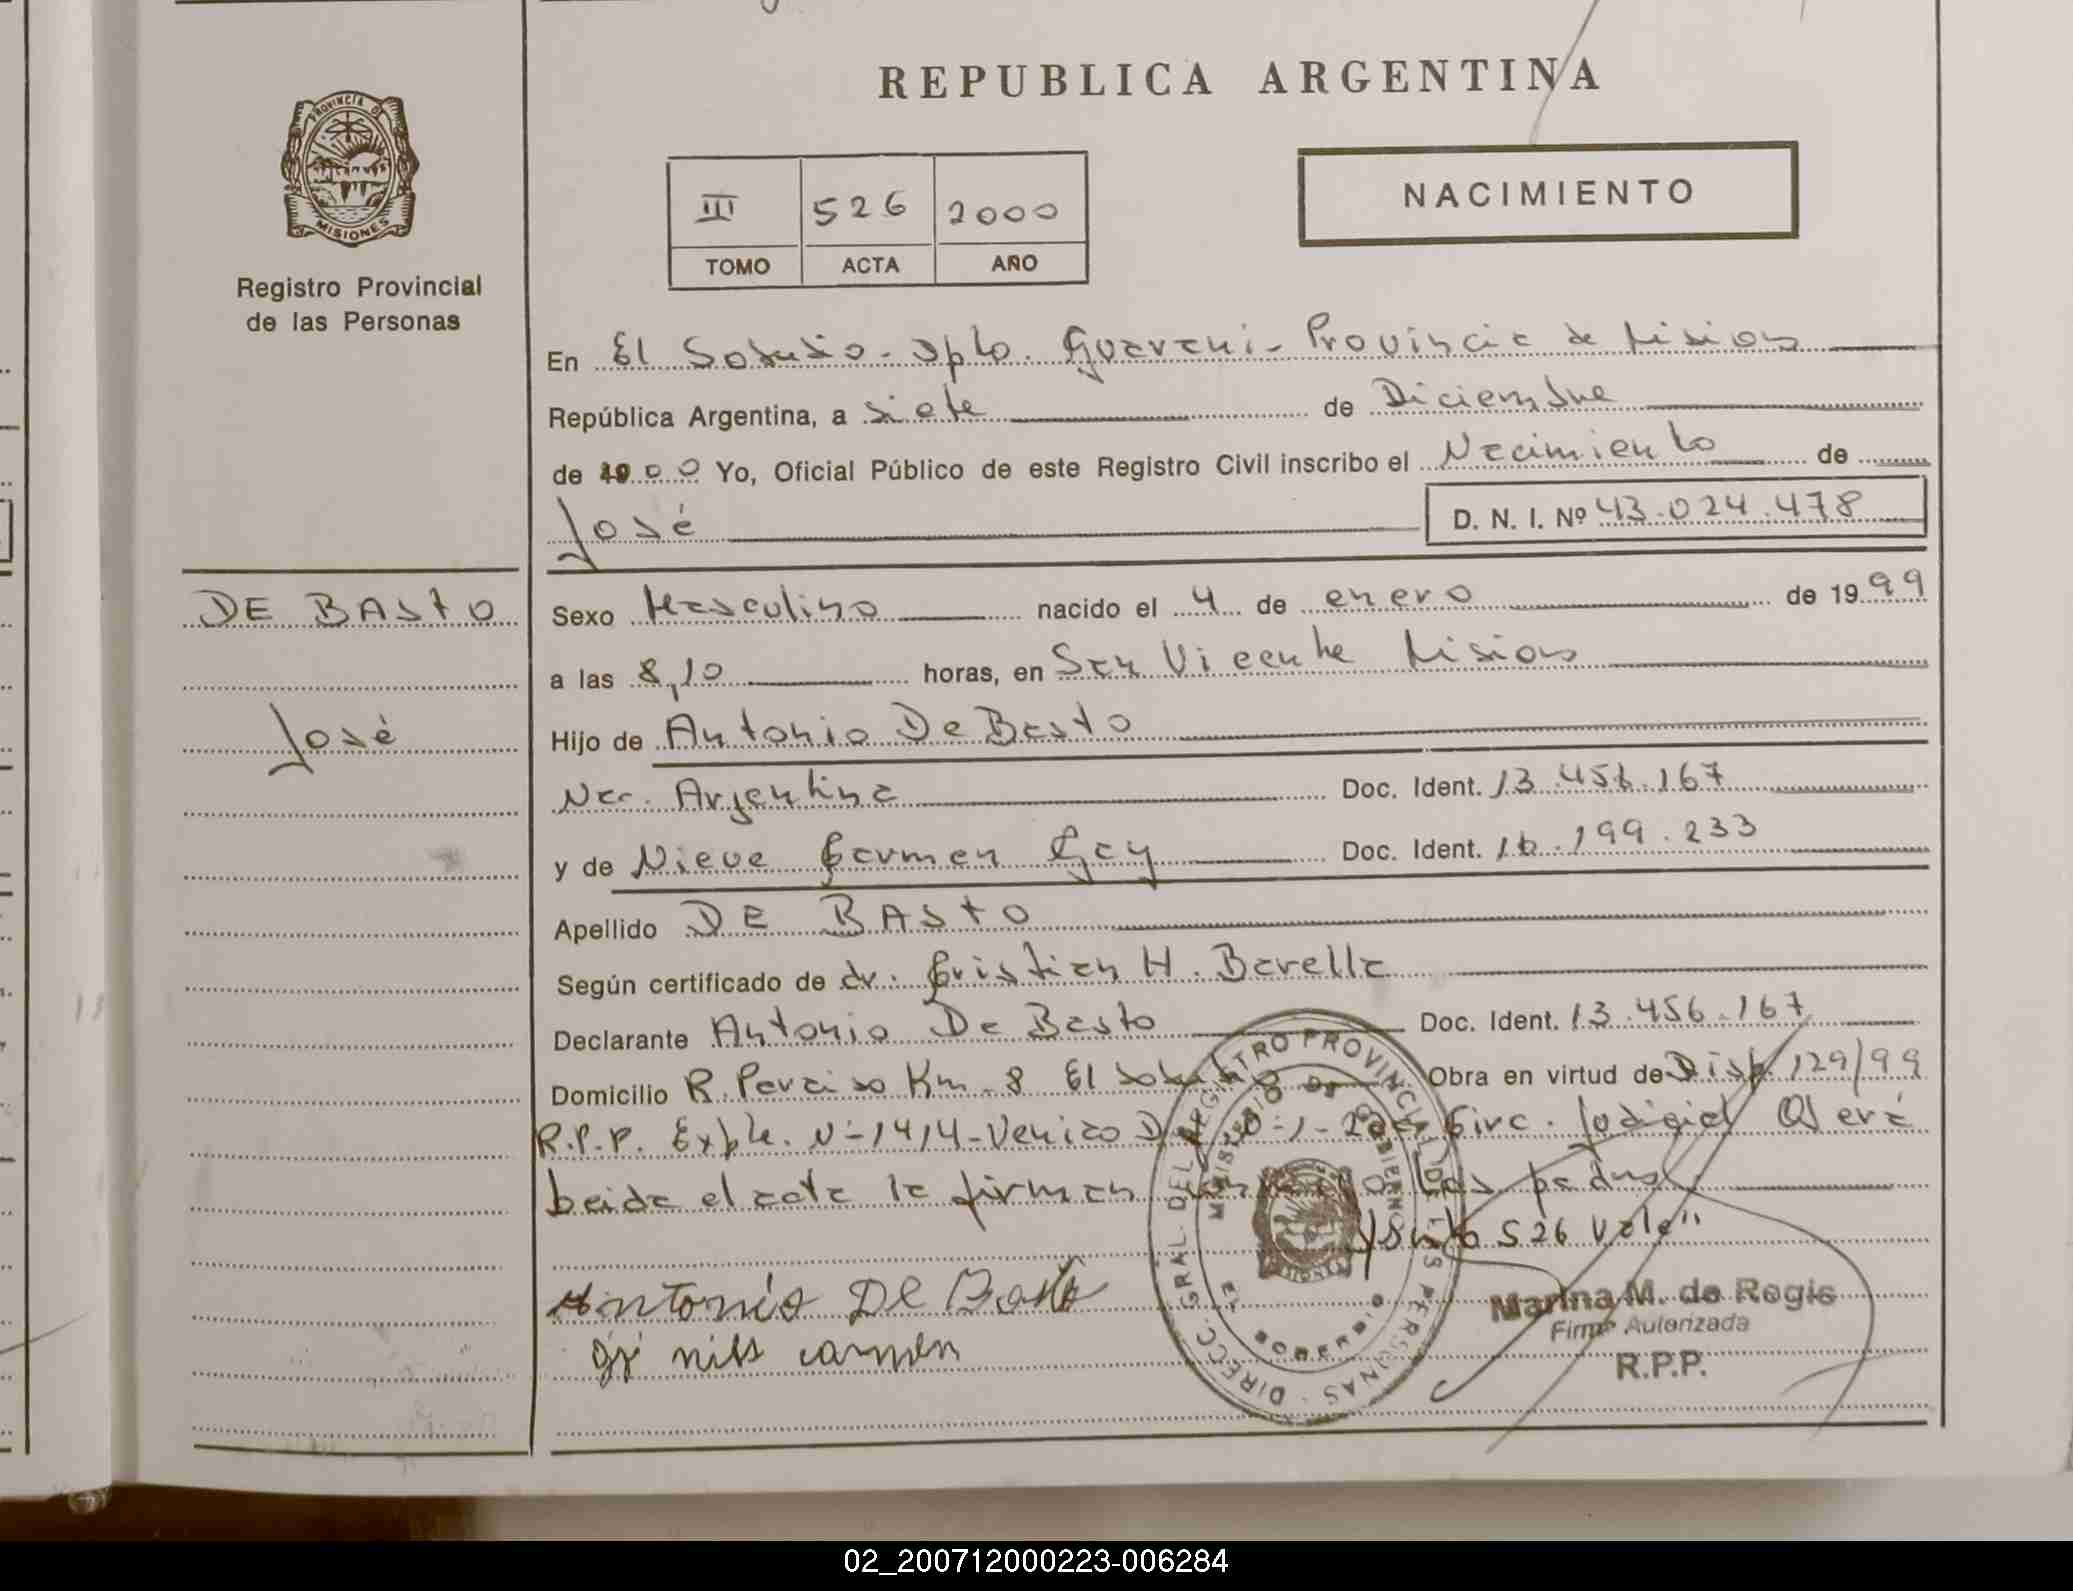 PROVINCIA DE
MISIONES
Registro Provincial
de las Personas
DE BASTO
José
REPUBLICA ARGENTINA
III 526 2000
TOMO ACTA AÑO
NACIMIENTO
En El Soberbio - Dpto. Guarani - Provincia de Misiones
República Argentina, a siete de Diciembre
de 19 00 Yo, Oficial Público de este Registro Civil inscribo el Nacimiento de
José D. N. I. Nº 43.024.478
Sexo Masculino nacido el 4 de enero de 1999
a las 8,10 horas, en San Vicente Misiones
Hijo de Antonio De Basto
Nac. Argentina Doc. Ident. 13.456.167
y de Nieve Carmen Gay Doc. Ident. 16.199.233
Apellido DE BASTO
Según certificado de dr. Cristian H. Barella
Declarante Antonio De Basto Doc. Ident. 13.456.167
Domicilio R. Paraiso Km. 8 El Soberbio Obra en virtud de Disp. 129/99
R.P.P. Expte. Nº 1414 - Circ. Judicial Oberá
leida el acta la firman los padres
526 Vale"
Antonio De Basto
carmen
DIRECC. GRAL. DEL REGISTRO PROVINCIAL DE LAS PERSONAS
MINISTERIO DE GOBIERNO
EL SOBERBIO
MISIONES
Marina M. de Regis
Firma Autorizada
R.P.P.
02_200712000223-006284